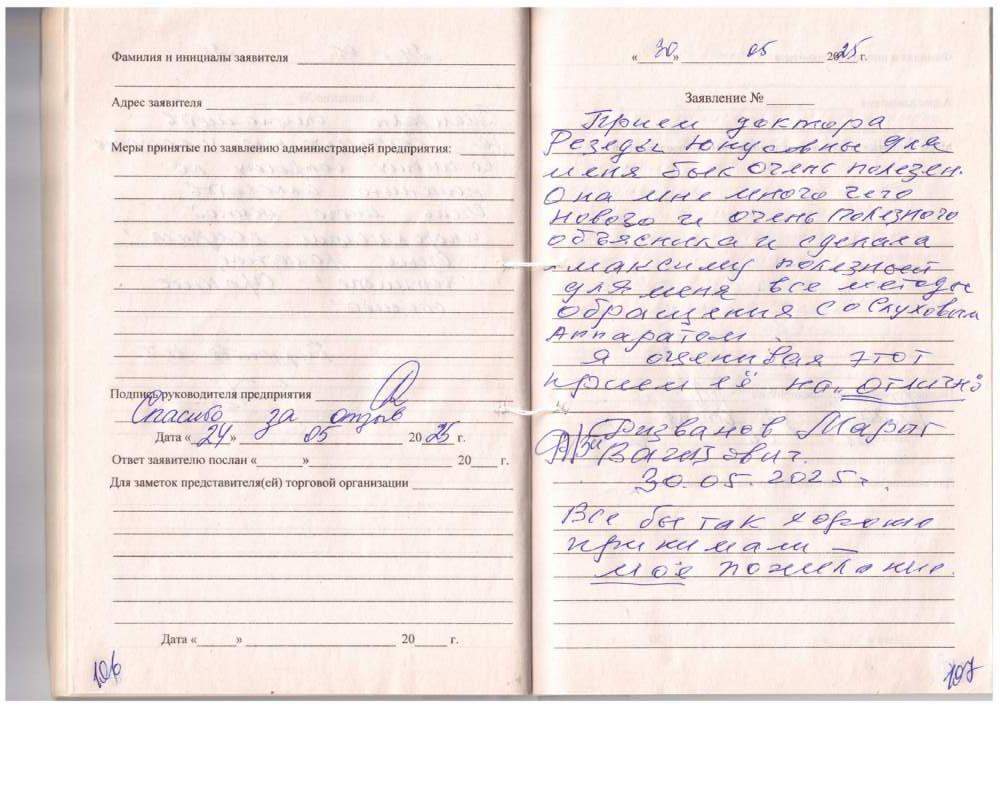 Фамилия и инициалы заявителя
Адрес заявителя
Меры принятые по заявлению администрацией предприятия:
Подпись руководителя предприятия
Спасибо за отзыв
Дата «24» 05 2025 г.
Ответ заявителю послан « » 20 г.
Для заметок представителя(ей) торговой организации
Дата « » 20 г.
106
«30» 05 2025 г.
Заявление №
Прием доктора
Резеды Юнусовны для
меня был очень полезен.
Она мне много чего
нового и очень полезного
объяснила и сделала
максиму полезный
для меня все методы
обращения со Слуховым
Аппаратом.
Я оценивая этот
прием её на „отлично
Ризванов Марат
Вагизович.
30.05.2025г.
Все бы так хорошо
принимали –
моё пожелание.
107